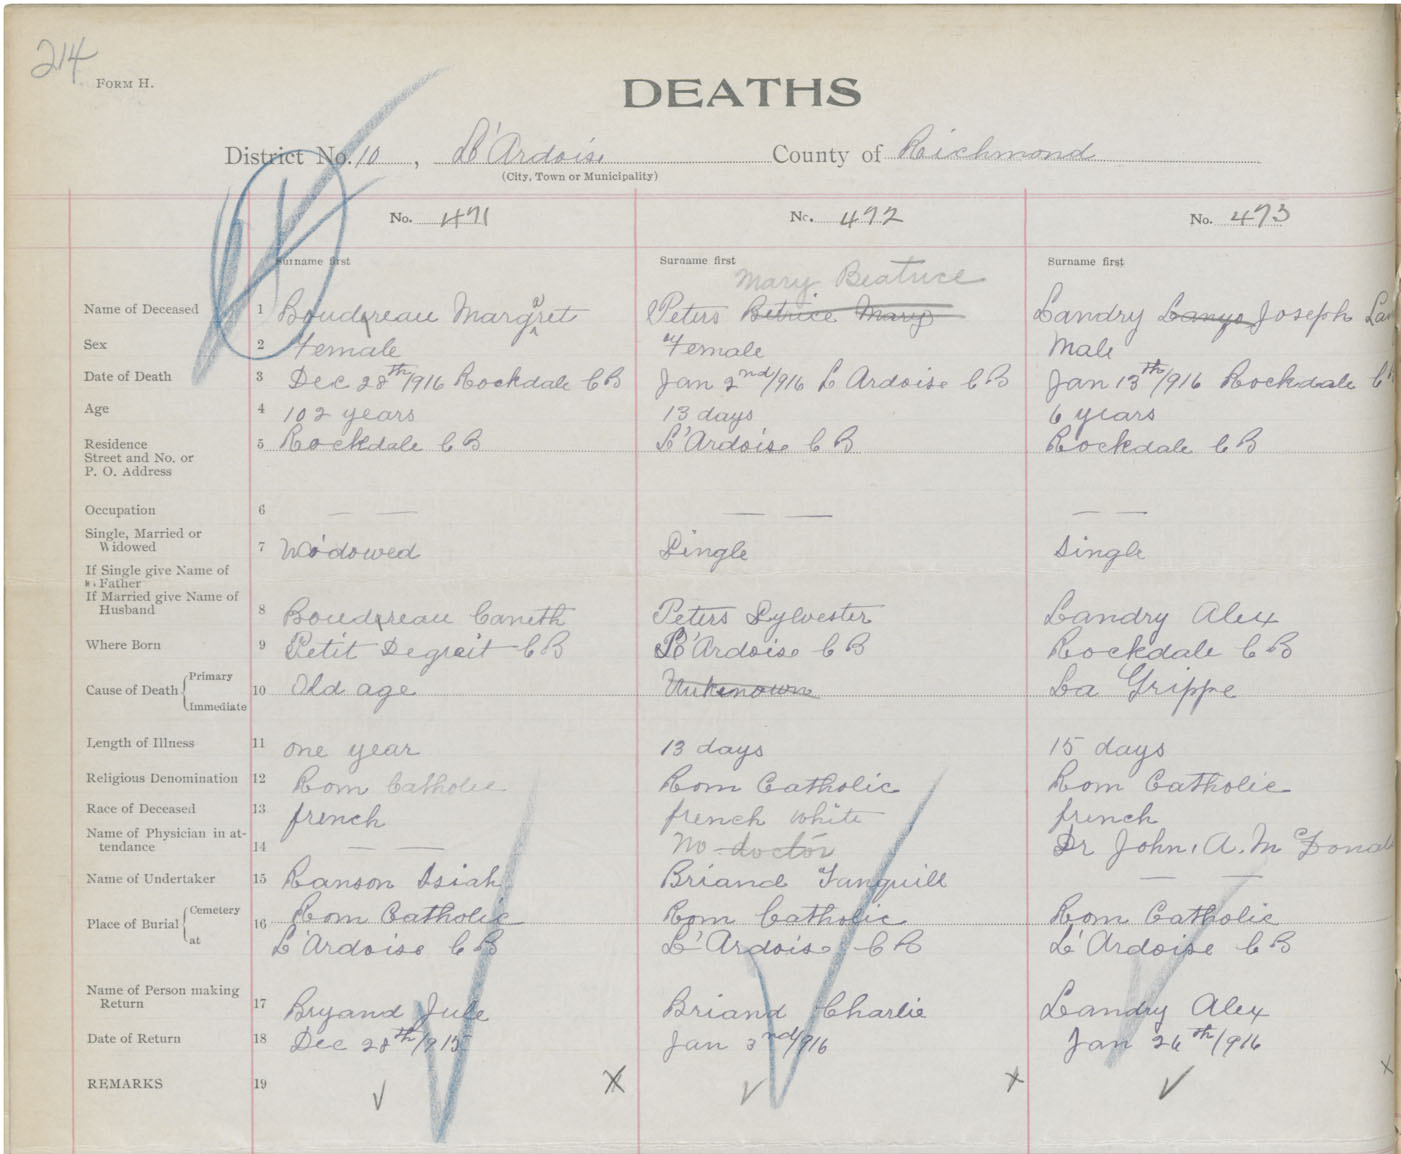 214
FORM H.
DEATHS
District No. 10, L'Ardoise County of Richmond
(City, Town or Municipality)
No. 471 No. 472 No. 473
Surname first Surname first Surname first
Mary Beatrice
Name of Deceased 1 Boudereau Margaret Peters Betrice Mary Landry Lanyo Joseph
Sex 2 Female Female Male
Date of Death 3 Dec 28th/1916 Rockdale CB Jan 2nd/1916 L Ardoise CB Jan 13th/1916 Rockdale C
Age 4 102 years 13 days 6 years
Residence
Street and No. or 5 Rockdale CB L'Ardoise CB Rockdale CB
P. O. Address
Occupation 6 — — — — — —
Single, Married or
Widowed 7 Widowed Single Single
If Single give Name of
" Father
If Married give Name of
Husband 8 Boudereau Caneth Peters Sylvester Landry Alex
Where Born 9 Petit Degrait CB L'Ardoise CB Rockdale CB
Cause of Death Primary 10 Old age Unkenown La Grippe
Immediate
Length of Illness 11 one year 13 days 15 days
Religious Denomination 12 Rom Catholic Rom Catholic Rom Catholic
Race of Deceased 13 french french white french
Name of Physician in at-
tendance 14 — — No doctor Dr John. A. Mc Donal
Name of Undertaker 15 Ranson Isiah Briand Tanquill — —
Place of Burial Cemetery 16 Rom Catholic Rom Catholic Rom Catholic
at L'Ardoise CB L'Ardoise CB L'Ardoise CB
Name of Person making
Return 17 Bryand Jule Briand Charlie Landry Alex
Date of Return 18 Dec 28th/915 Jan 3nd/916 Jan 26th/1916
REMARKS 19